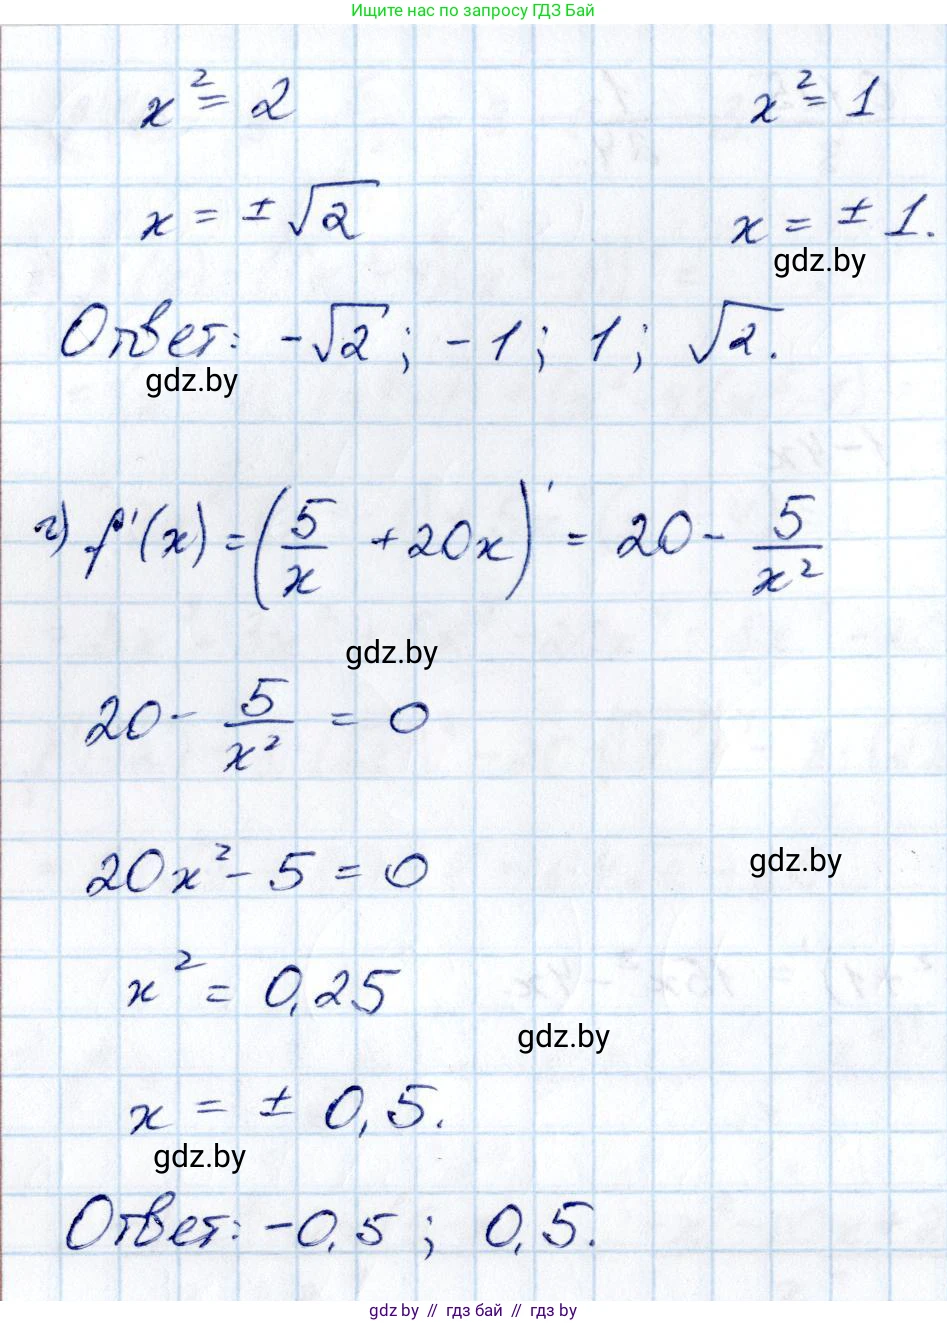 Ищите нас по запросу ГДЗ Бай
x² = 2 x² = 1
x = ± √2 x = ± 1.
gdz.by
Ответ: -√2; -1; 1; √2.
gdz.by
г) f'(x) = (5/x + 20x)' = 20 - 5/x²
gdz.by
20 - 5/x² = 0
20x² - 5 = 0
gdz.by
x² = 0,25
gdz.by
x = ± 0,5.
gdz.by
Ответ: -0,5; 0,5.
gdz.by // гдз бай // гдз by